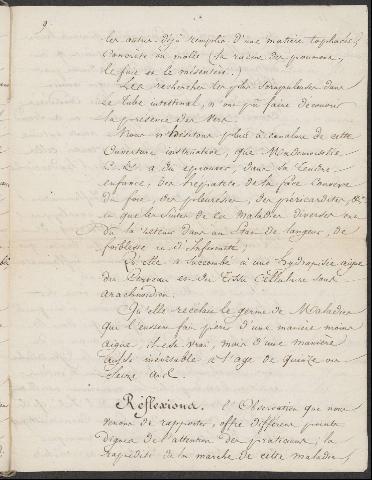 9.
les autres déjà remplis d'une matière tophacée,
concrète ou molle (la racine des poumons,
le foie et le mésentère.)
Les recherches les plus scrupuleuses dans
le tube intestinal, n'ont pû faire découvrir
la présence des vers.
Nous n'hésitons plus à conclure de cette
ouverture instructive, que Mademoiselle
a du éprouver, dans sa tendre
enfance, des hépatites de la face convexe
du foie, des pleuresies, des pericardites, &c
et que les suites de ces maladies diverses ont
dû la retenir dans un état de langueur, de
faiblesse et d'infirmité;
Qu'elle a succombé à une hydropisie aigue
du cerveau et du tissu cellulaire sous
arachnoidien.
Qu'elle recélait le germe de maladies
qui l'eussent fait périr d'une manière moins
aigue, il est vrai, mais d'une manière
aussi inévitable à l'age de quinze ou
seize ans.
Réflexions. L'observation que nous
venons de rapporter, offre différens points
dignes de l'attention des praticiens; la
rapidité de la marche de cette maladie,